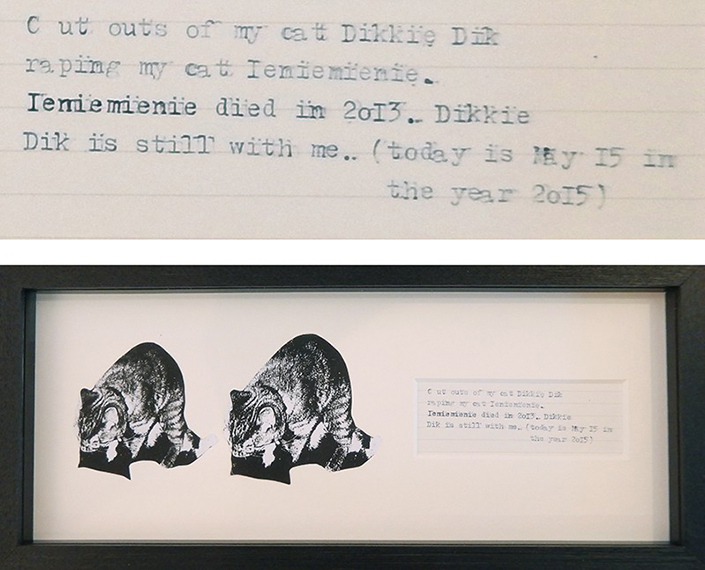 C ut outs of my cat Dikkie Dik
raping my cat Ieniemienie.
Ieniemienie died in 2oI3.. Dikkie
Dik is still with me.. (today is May I5 in
the year 2oI5)
C ut outs of my cat Dikkie Dik
raping my cat Ieniemienie.
Ieniemienie died in 2oI3.. Dikkie
Dik is still with me.. (today is May I5 in
the year 2oI5)